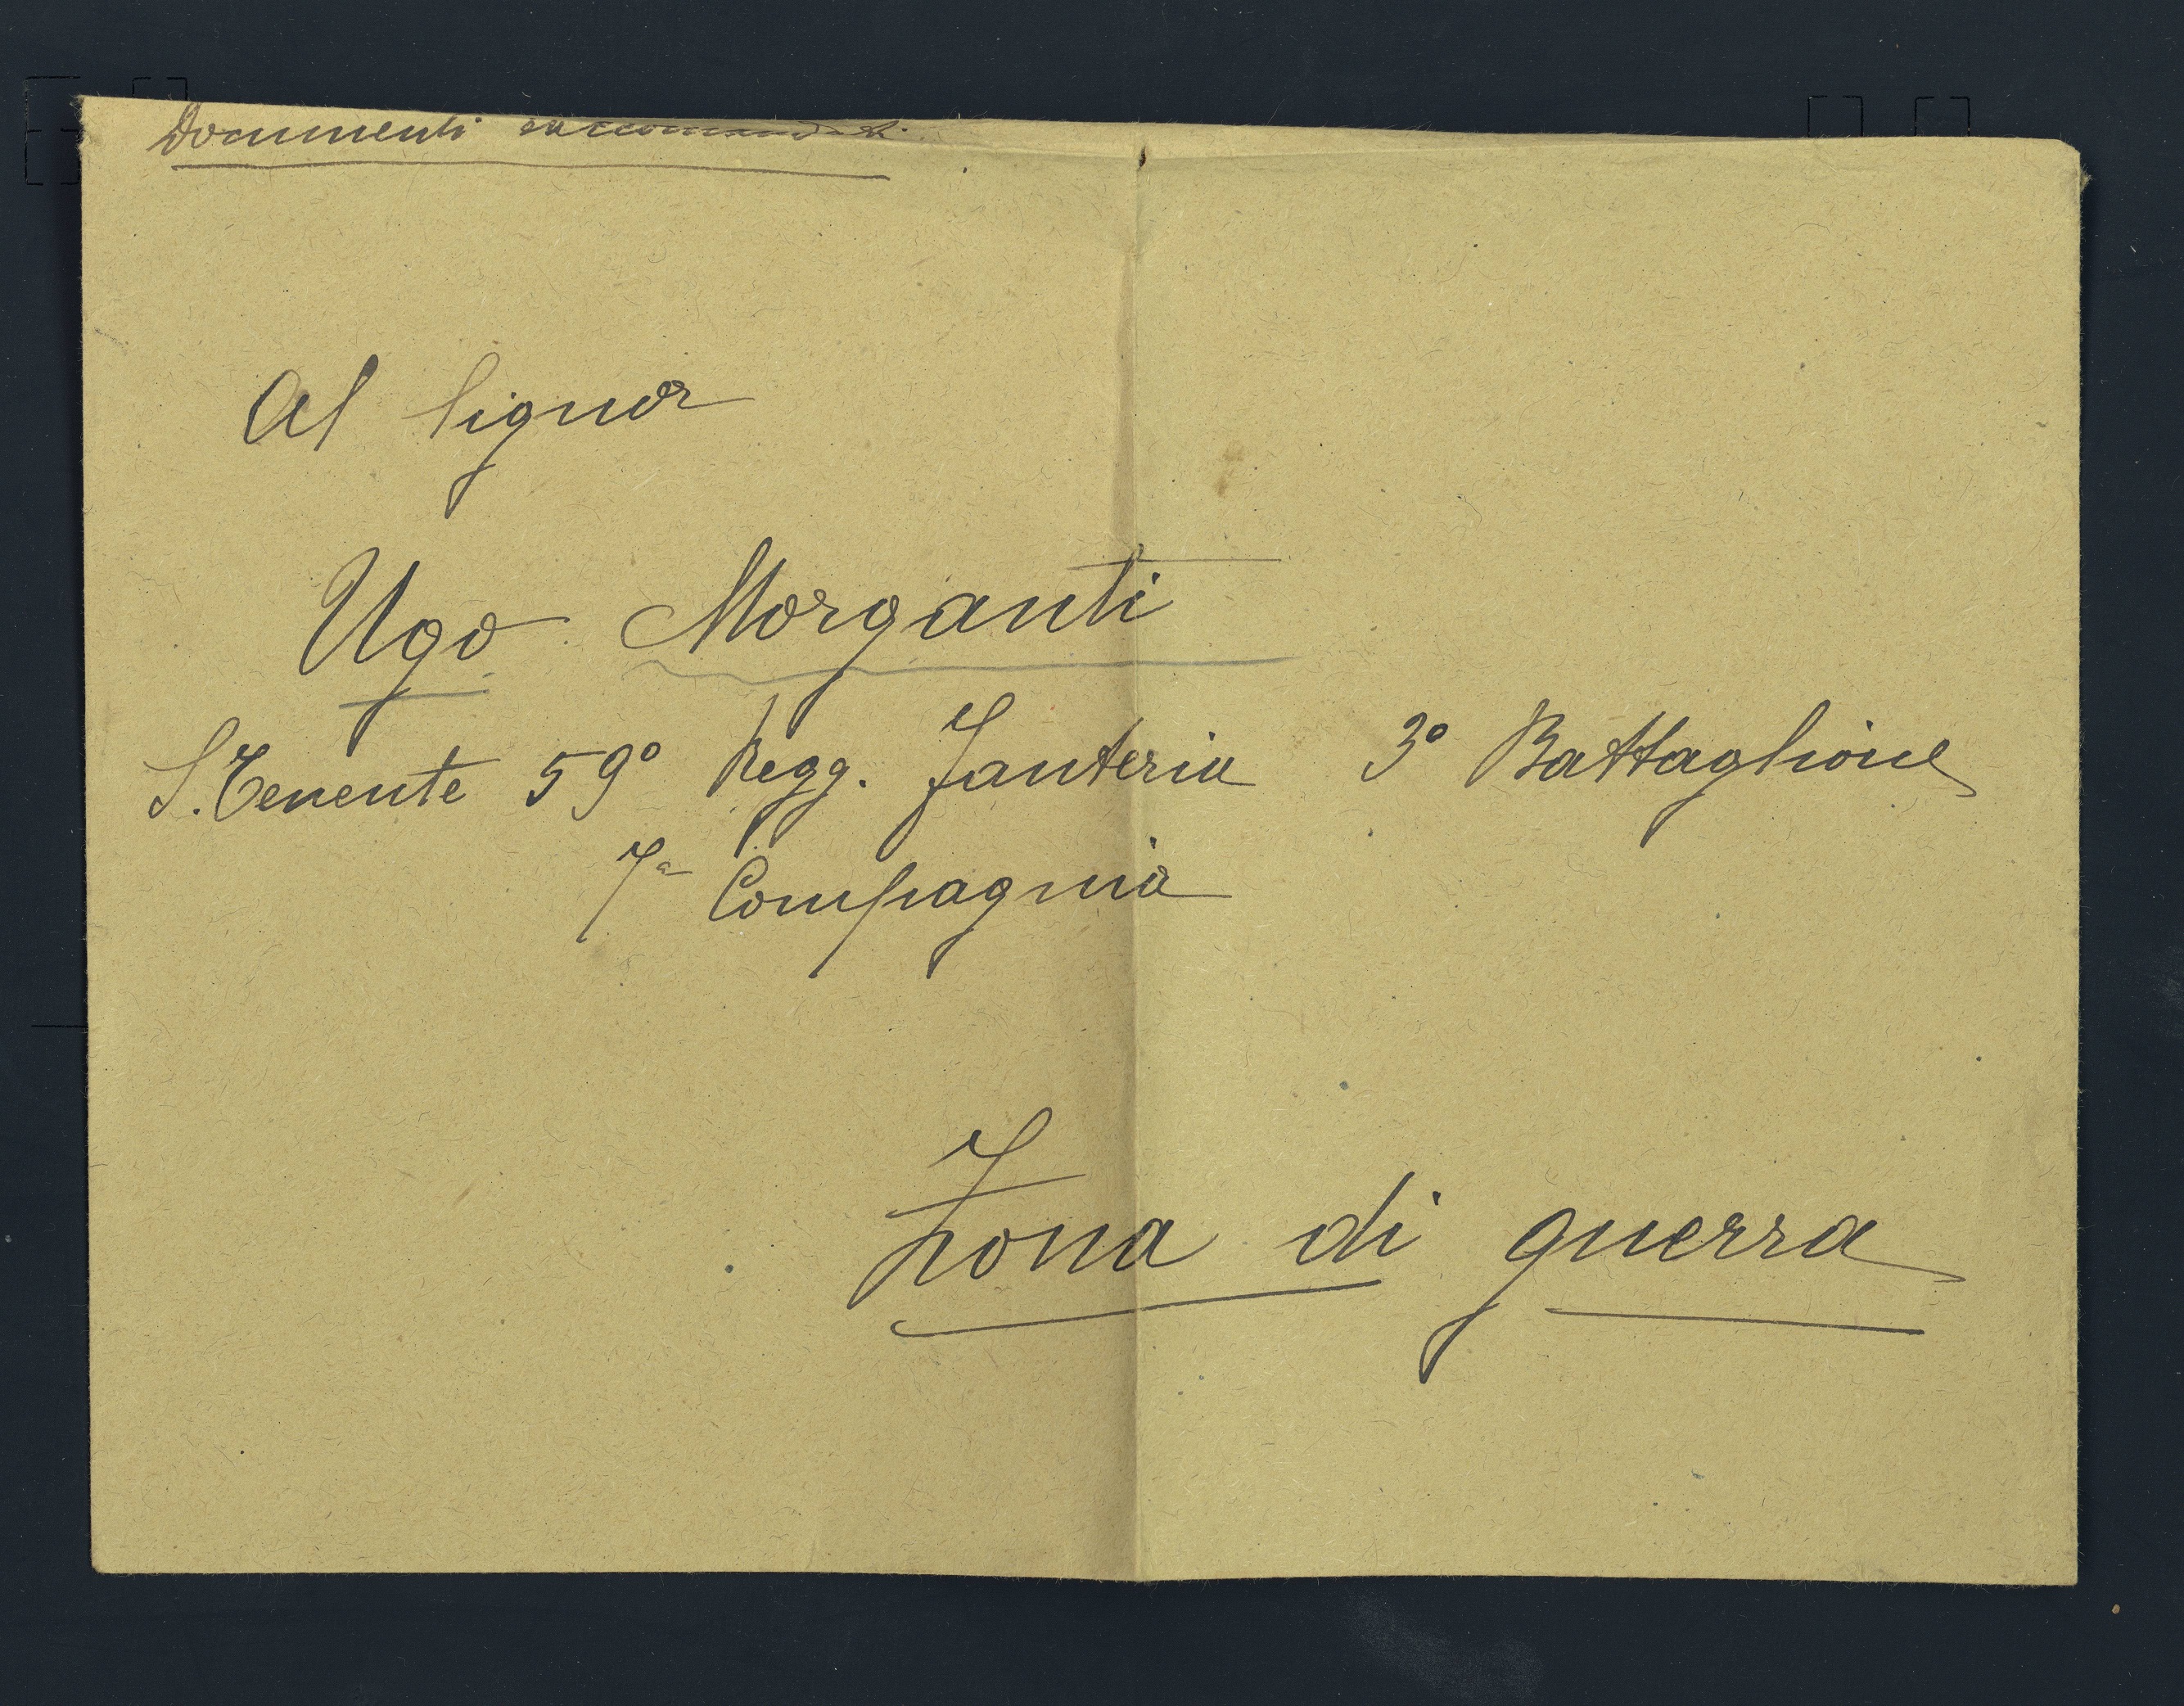 Documenti raccomandati
Al Signor
Ugo Morganti
S. Tenente 59° Regg. Fanteria 3° Battaglione
7ª Compagnia
Zona di guerra